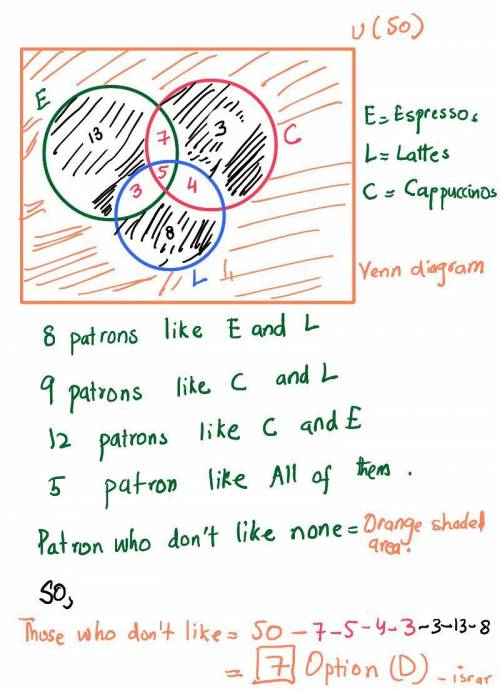 U (50)
E
13
7
3
C
5
3
4
8
L
E = Espressos
L = Lattes
C = Cappuccinos
Venn diagram
8 patrons like E and L
9 patrons like C and L
12 patrons like C and E
5 patron like All of them .
Patron who don't like none = Orange shaded
area.
SO,
Those who don't like = 50 - 7 - 5 - 4 - 3 - 3 - 13 - 8
= 7 Option (D) - israr